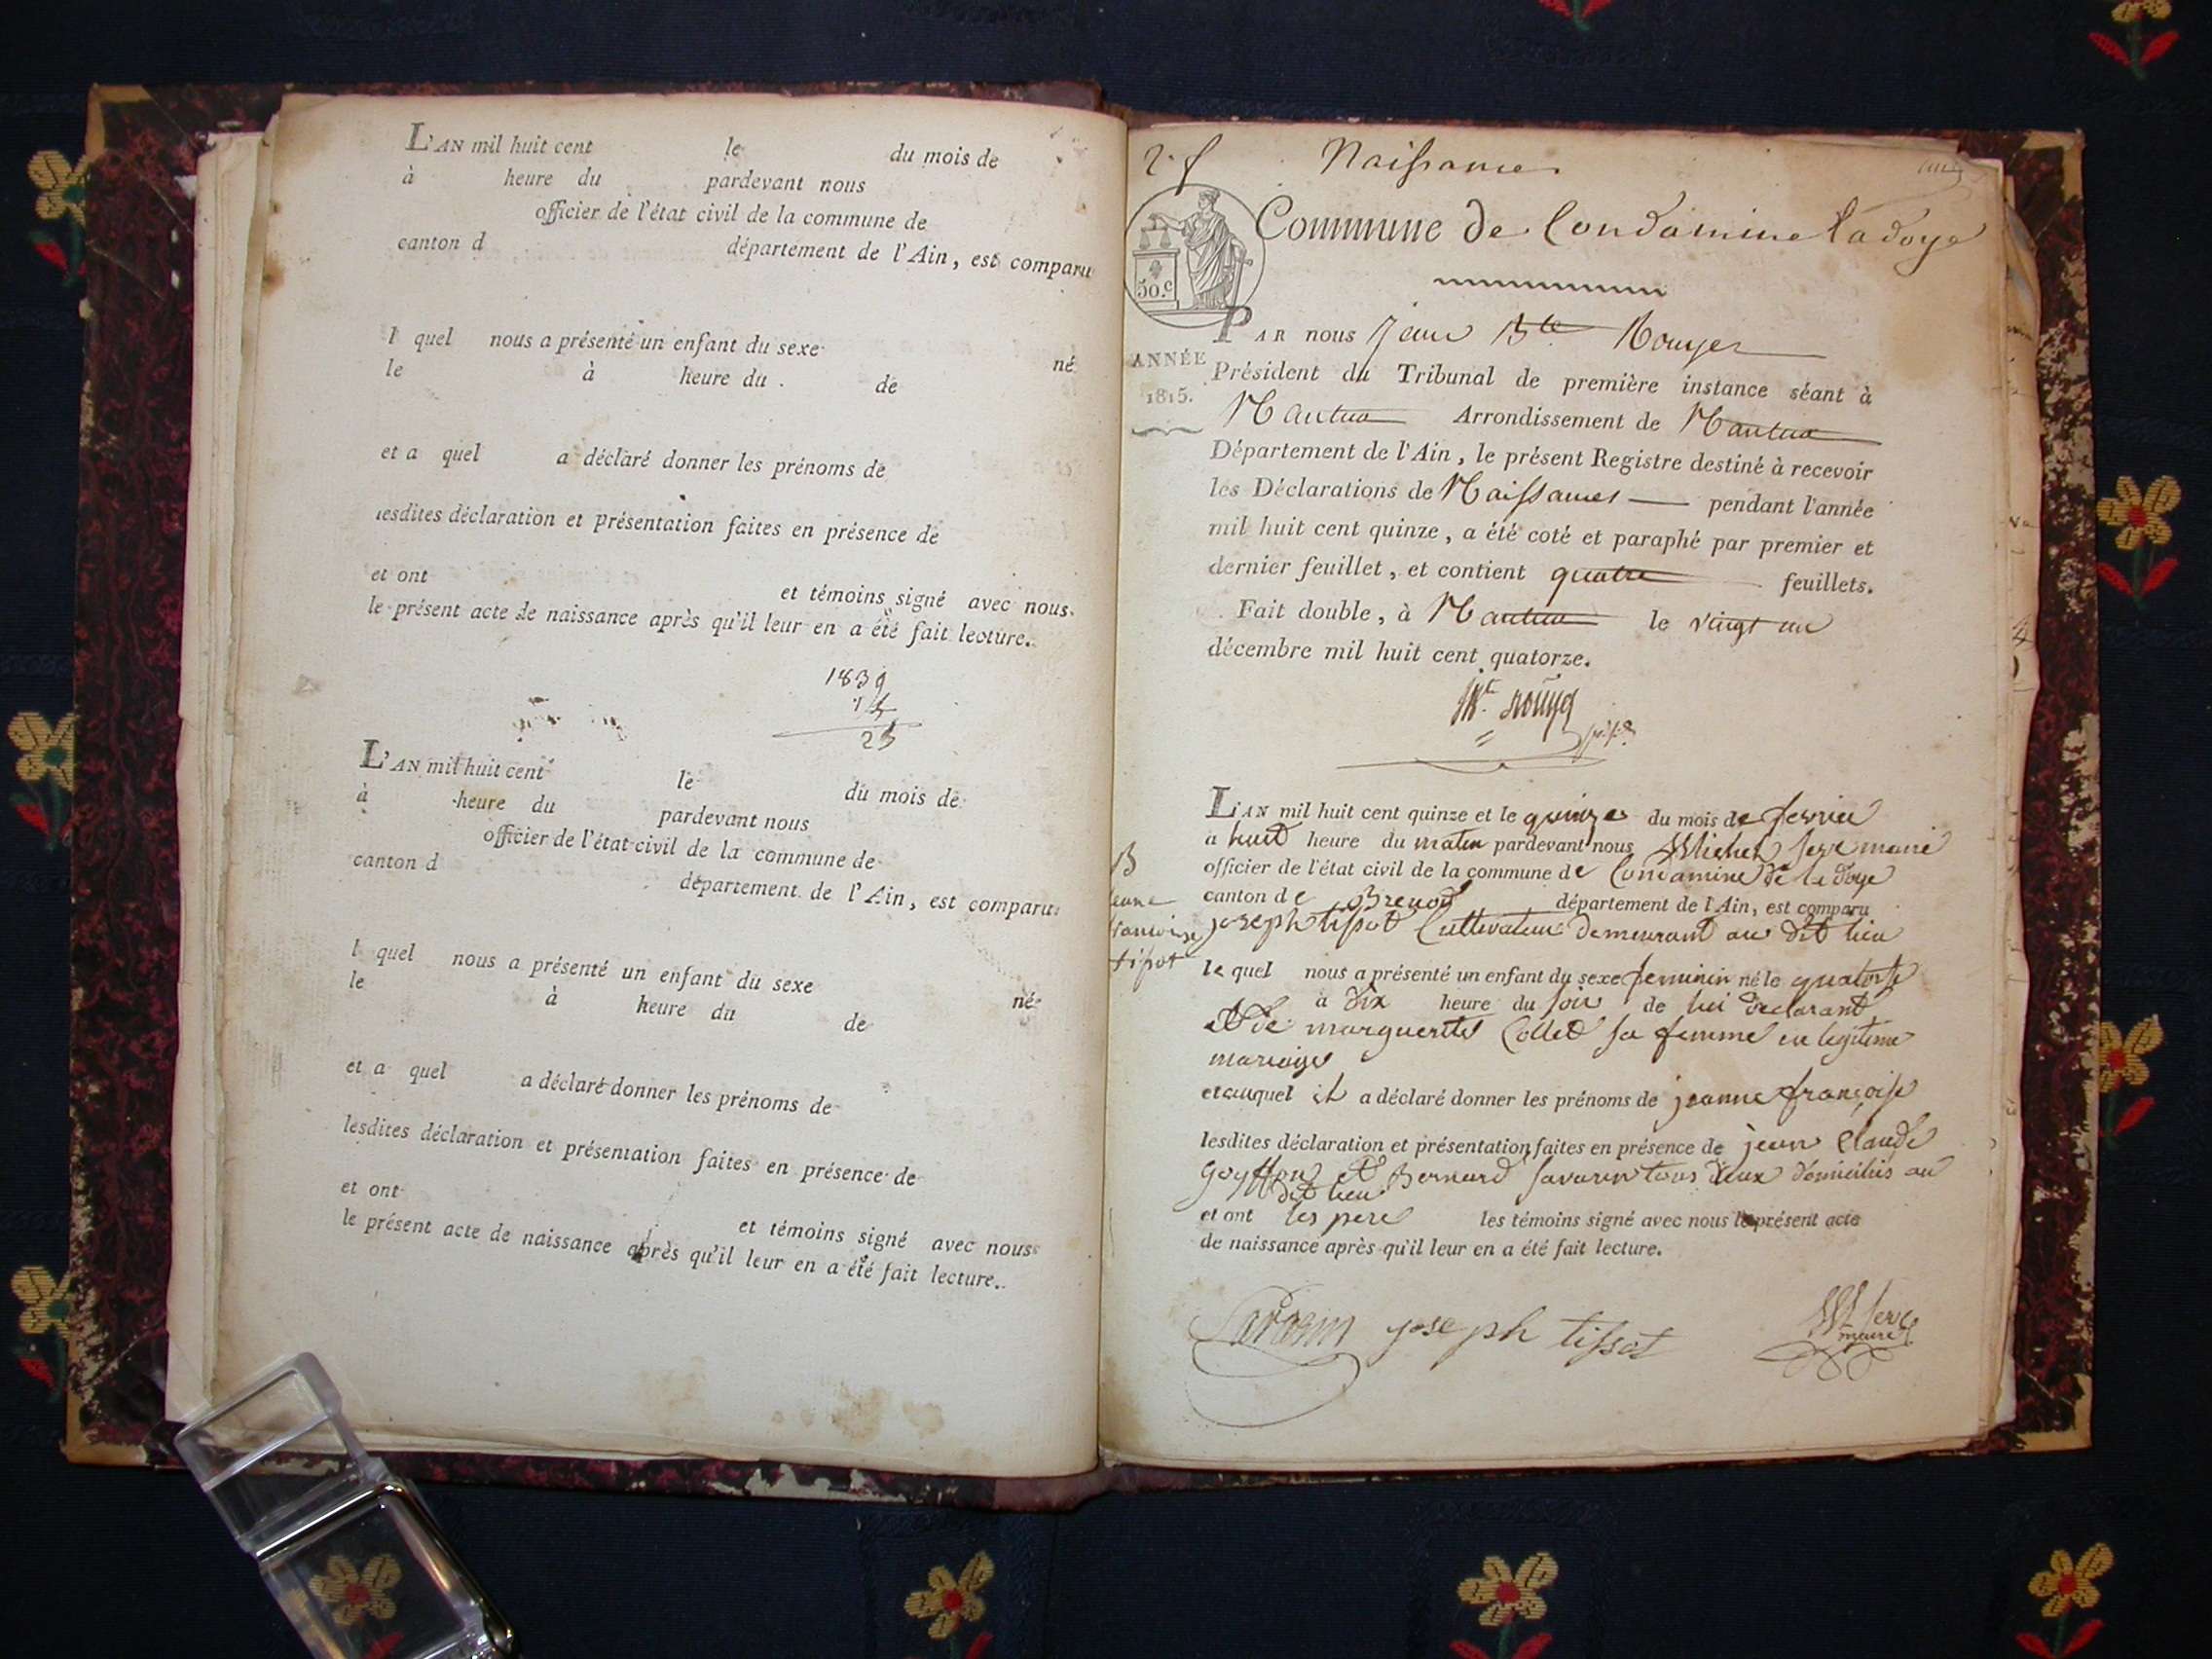 L'AN mil huit cent le du mois de
à heure du pardevant nous
officier de l'état civil de la commune de
canton d département de l'Ain, est comparu
l quel nous a présenté un enfant du sexe né
le à heure du de
et a quel a déclaré donner les prénoms de
lesdites déclaration et présentation faites en présence de
et ont et témoins signé avec nous
le présent acte de naissance après qu'il leur en a été fait lecture.
1839
15
L'AN mil huit cent le du mois de
à heure du pardevant nous
officier de l'état civil de la commune de
canton d département de l'Ain, est comparu
l quel nous a présenté un enfant du sexe né
le à heure du de
et a quel a déclaré donner les prénoms de
lesdites déclaration et présentation faites en présence de
et ont et témoins signé avec nous
le présent acte de naissance après qu'il leur en a été fait lecture.
Naissances
Commune de Condamine Ladoye
50.c
PAR nous Jean Bte Rouyer
ANNÉE
1815.
Président du Tribunal de première instance séant à
Nantua Arrondissement de Nantua
Département de l'Ain, le présent Registre destiné à recevoir
les Déclarations de Naissances pendant l'année
mil huit cent quinze, a été coté et paraphé par premier et
dernier feuillet, et contient quatre feuillets.
Fait double, à Nantua le vingt un
décembre mil huit cent quatorze.
L'AN mil huit cent quinze et le quinze du mois de fevrier
a huit heure du matin pardevant nous Michel Serve maire
officier de l'état civil de la commune de Condamine de la doye
canton de Brenod département de l'Ain, est comparu
joseph tissot Cultivateur demeurant au dit lieu
jeanne
francoise
tissot
le quel nous a présenté un enfant du sexe feminin né le quatorse
a dix heure du soir de lui declarant
et de marguerite Collet sa femme en legitime
mariage
et auquel il a déclaré donner les prénoms de jeanne françoise
lesdites déclaration et présentation faites en présence de jean Claude
goyffon et Bernard Savarin tous deux domiciliés au
dit lieu
et ont les pere les témoins signé avec nous le présent acte
de naissance après qu'il leur en a été fait lecture.
Savarin joseph tissot M Serve
maire